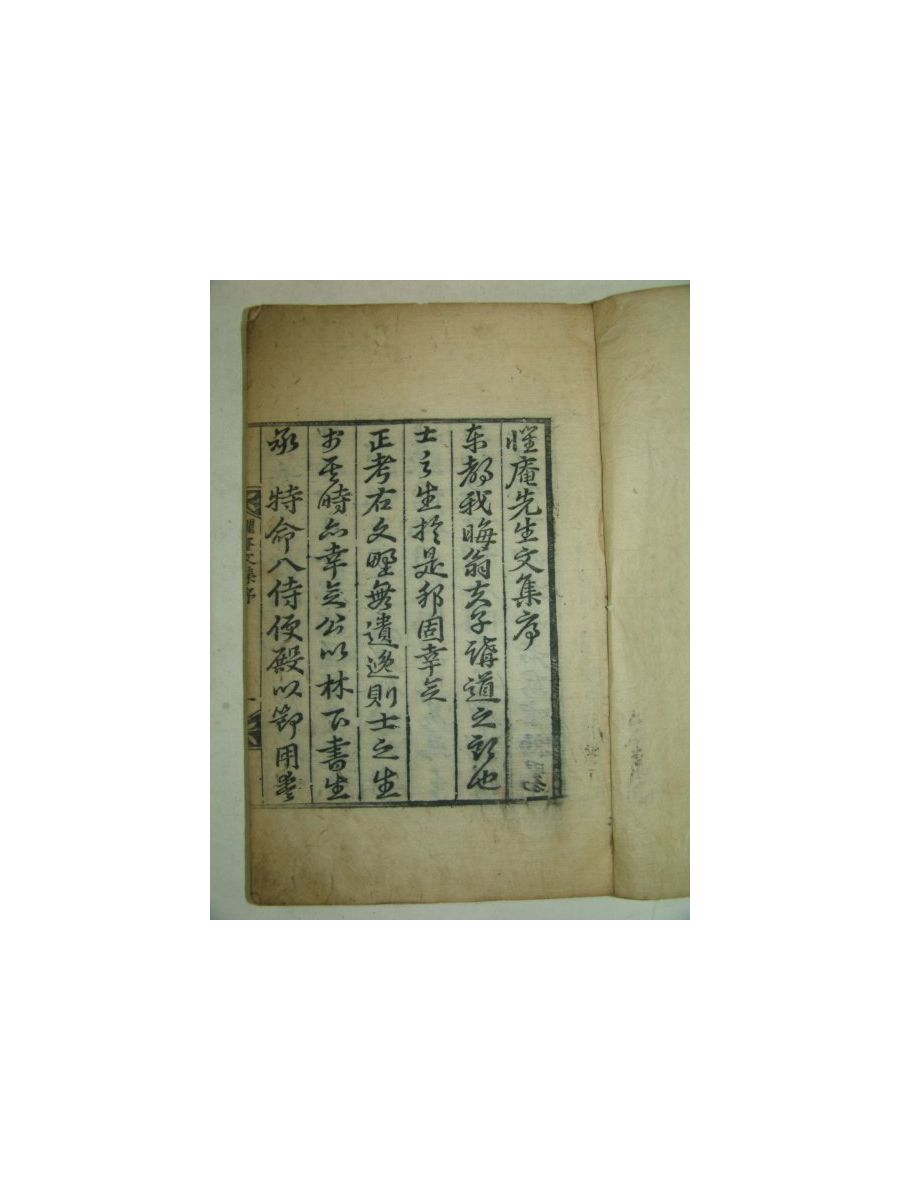 懼庵先生文集序
東都我晦翁夫子講道之所也
士之生於是邦固幸矣
正考右文野無遺逸則士之生
於其時亦幸矣公以林下書生
承 特命入侍便殿以節用愛
懼庵文集序